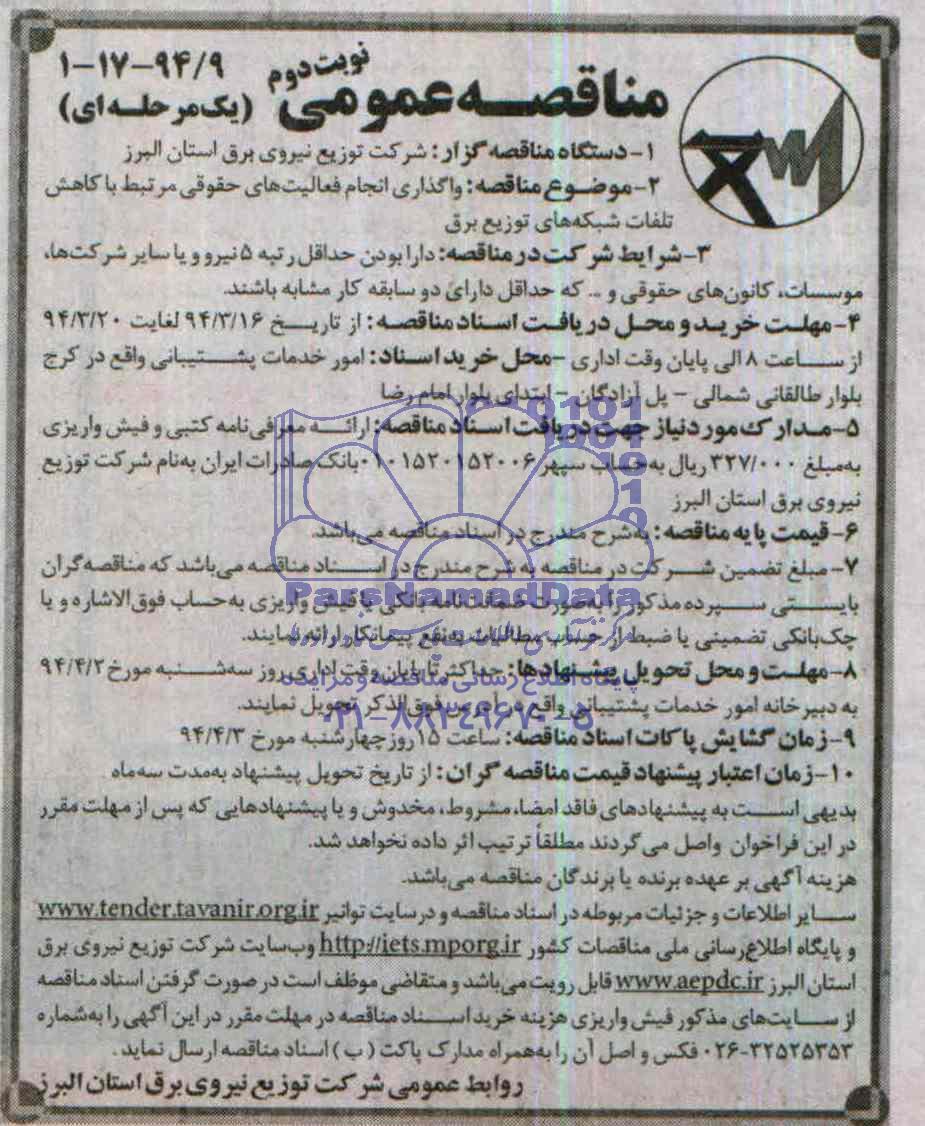 نوبت دوم
مناقصه عمومی (یک مرحله ای) ۱-۱۷-۹۴/۹
۱- دستگاه مناقصه گزار: شرکت توزیع نیروی برق استان البرز
۲- موضوع مناقصه: واگذاری انجام فعالیت‌های حقوقی مرتبط با کاهش
تلفات شبکه‌های توزیع برق
۳- شرایط شرکت در مناقصه: دارا بودن حداقل رتبه ۵ نیرو و یا سایر شرکت‌ها،
موسسات، کانون‌های حقوقی و ... که حداقل دارای دو سابقه کار مشابه باشند.
۴- مهلت خرید و محل دریافت اسناد مناقصه: از تاریخ ۹۴/۳/۱۶ لغایت ۹۴/۳/۲۰
از ساعت ۸ الی پایان وقت اداری - محل خرید اسناد: امور خدمات پشتیبانی واقع در کرج
بلوار طالقانی شمالی - پل آزادگان - ابتدای بلوار امام رضا
۵- مدارک مورد نیاز جهت دریافت اسناد مناقصه: ارائه معرفی‌نامه کتبی و فیش واریزی
به‌مبلغ ۳۲۷/۰۰۰ ریال به‌حساب سپهر ۰۱۰۱۵۲۰۱۵۲۰۰۶ بانک صادرات ایران به‌نام شرکت توزیع
نیروی برق استان البرز
۶- قیمت پایه مناقصه: به‌شرح مندرج در اسناد مناقصه می‌باشد.
۷- مبلغ تضمین شرکت در مناقصه به شرح مندرج در اسناد مناقصه می‌باشد که مناقصه‌گران
بایستی سپرده مذکور را به‌صورت ضمانت‌نامه بانکی یا فیش واریزی به‌حساب فوق‌الاشاره و یا
چک‌بانکی تضمینی یا ضبط از حساب مطالبات به‌نفع پیمانکار ارائه نمایند.
۸- مهلت و محل تحویل پیشنهادها: حداکثر تا پایان وقت اداری روز سه‌شنبه مورخ ۹۴/۴/۲
به دبیرخانه امور خدمات پشتیبانی واقع در آدرس فوق‌الذکر تحویل نمایند.
۹- زمان گشایش پاکات اسناد مناقصه: ساعت ۱۵ روز چهارشنبه مورخ ۹۴/۴/۳
۱۰- زمان اعتبار پیشنهاد قیمت مناقصه گران: از تاریخ تحویل پیشنهاد به‌مدت سه‌ماه
بدیهی است به پیشنهادهای فاقد امضا، مشروط، مخدوش و یا پیشنهادهایی که پس از مهلت مقرر
در این فراخوان واصل می‌گردند مطلقاً ترتیب اثر داده نخواهد شد.
هزینه آگهی بر عهده برنده یا برندگان مناقصه می‌باشد.
سایر اطلاعات و جزئیات مربوطه در اسناد مناقصه و در سایت توانیر www.tender.tavanir.org.ir
و پایگاه اطلاع‌رسانی ملی مناقصات کشور http://iets.mporg.ir وب‌سایت شرکت توزیع نیروی برق
استان البرز www.aepdc.ir قابل رویت می‌باشد و متقاضی موظف است در صورت گرفتن اسناد مناقصه
از سایت‌های مذکور فیش واریزی هزینه خرید اسناد مناقصه در مهلت مقرر در این آگهی را به‌شماره
۰۲۶-۳۲۵۲۵۳۵۳ فکس و اصل آن را به‌همراه مدارک پاکت (ب) اسناد مناقصه ارسال نماید.
روابط عمومی شرکت توزیع نیروی برق استان البرز
ParsNamadData
پایگاه اطلاع رسانی مناقصه و مزایده
۰۲۱-۸۸۳۴۹۶۷۰-۵